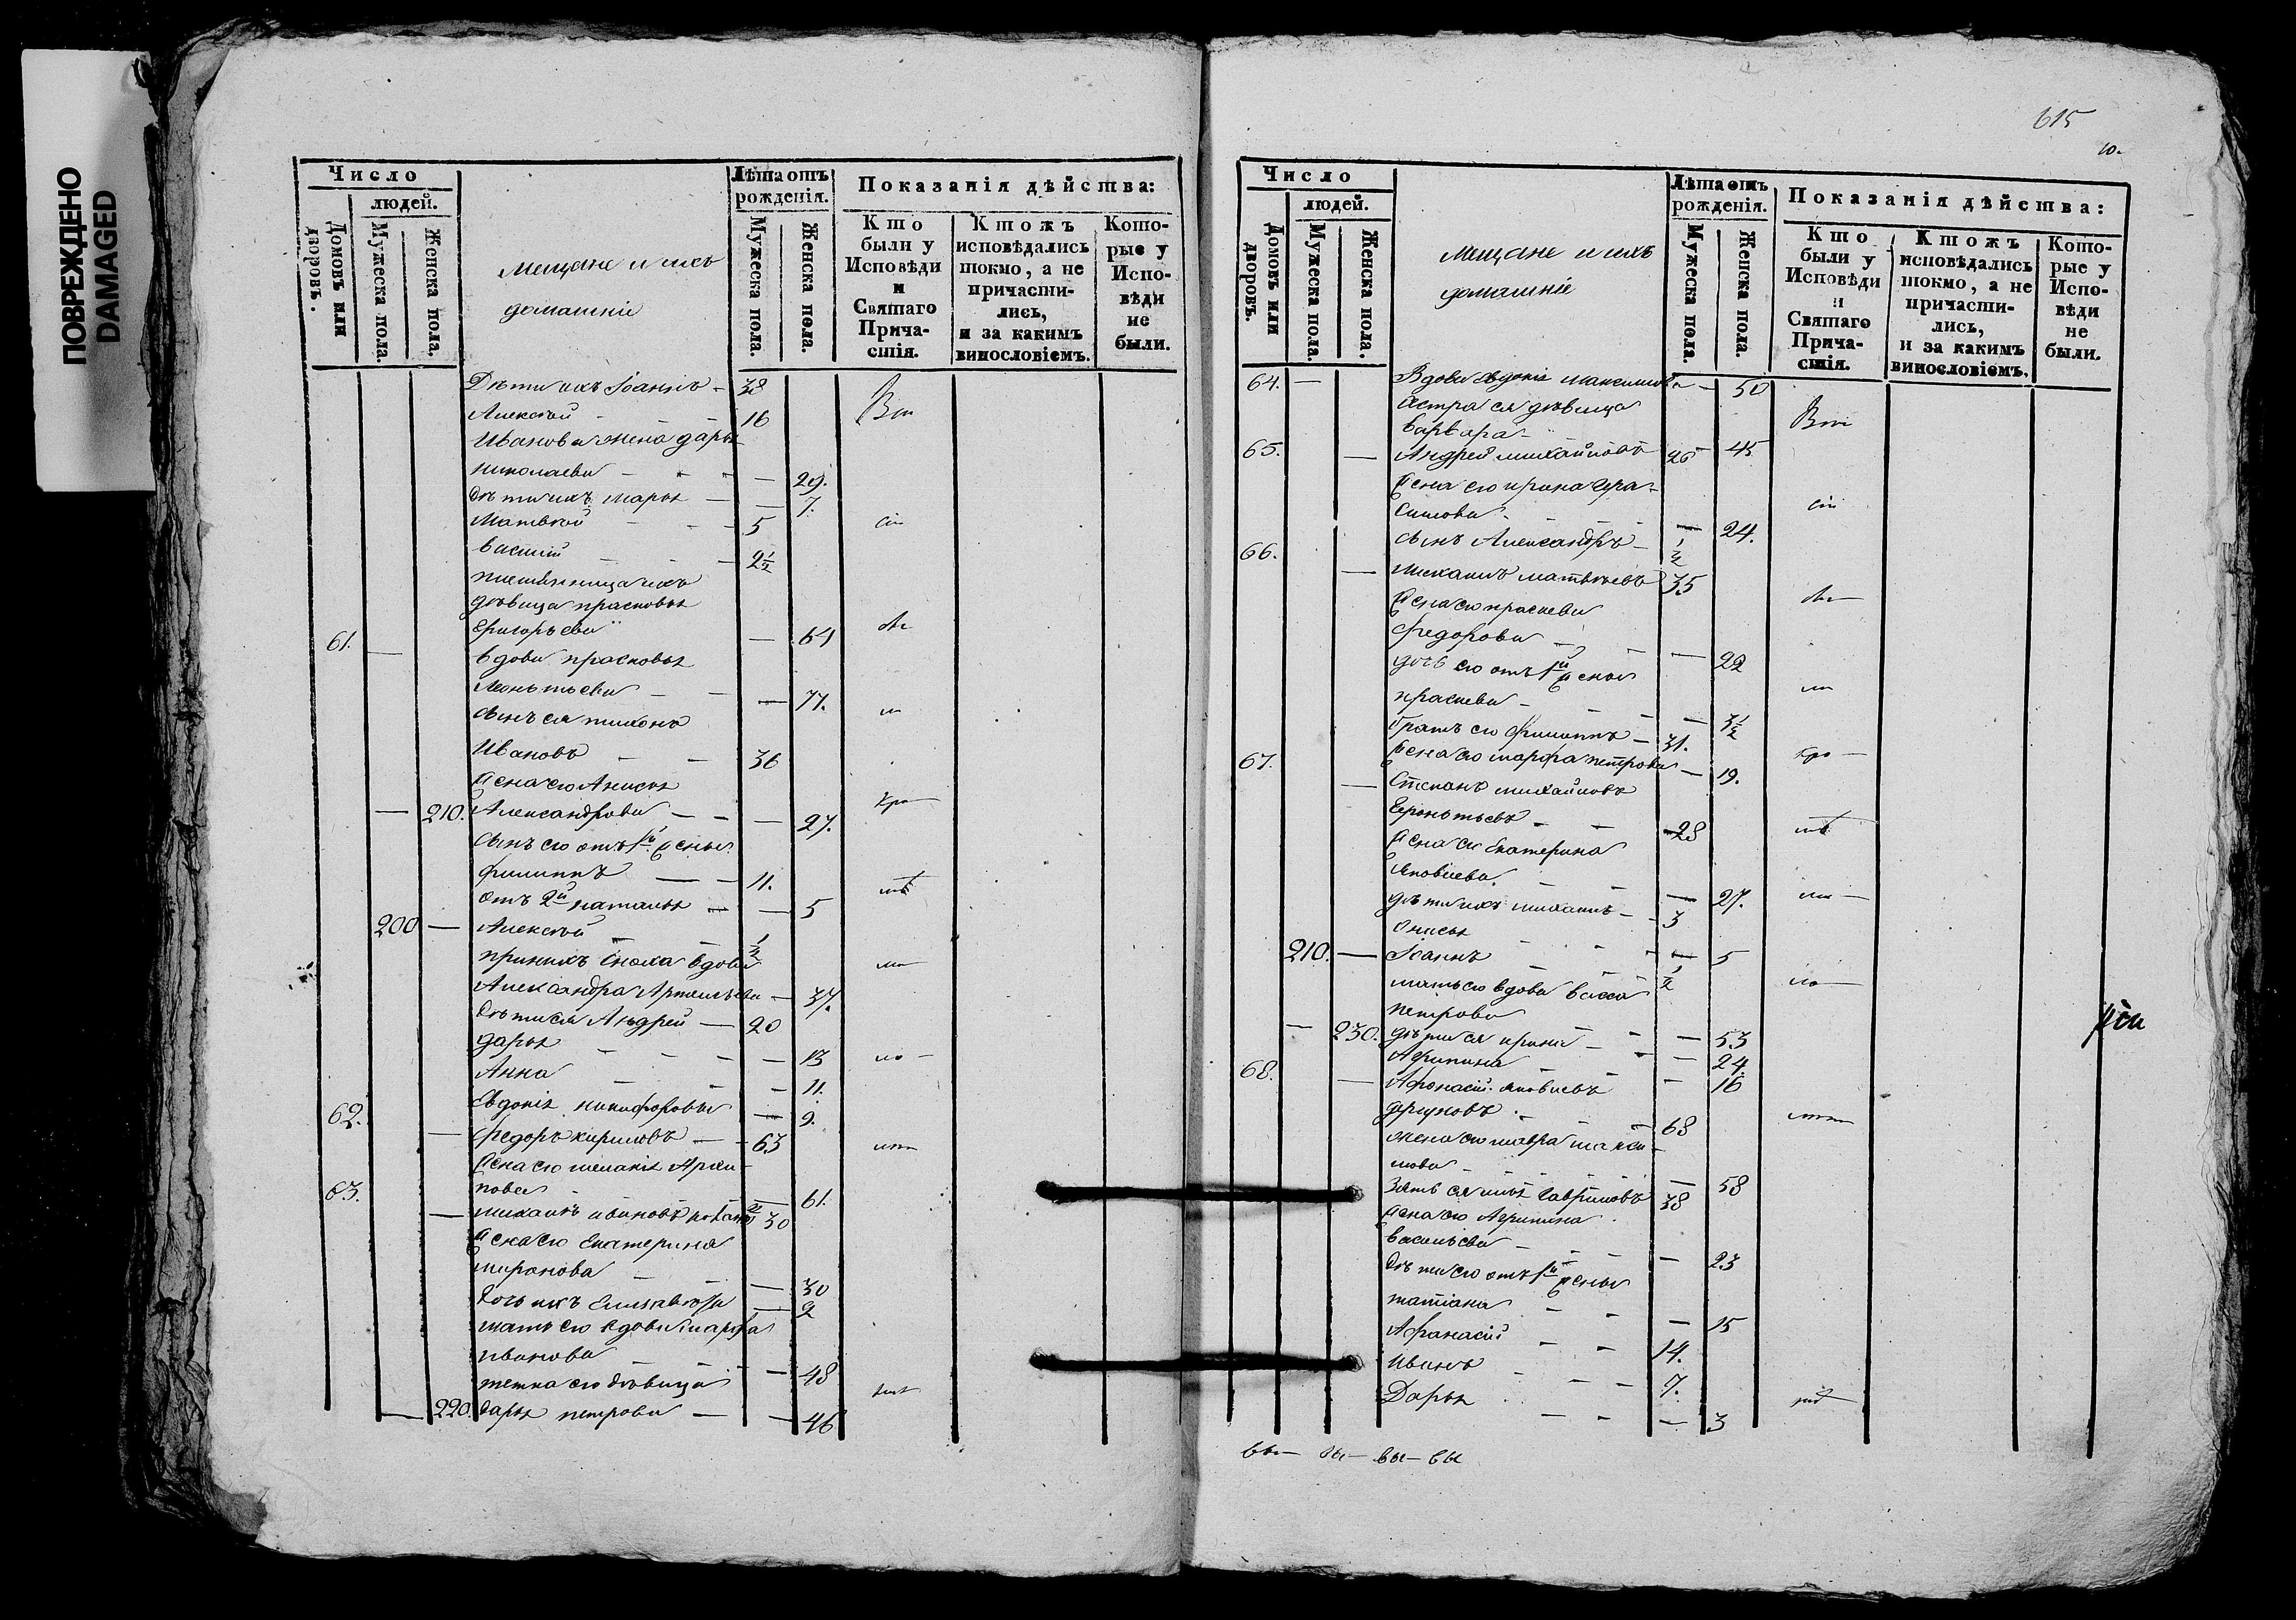 ПОВРЕЖДЕНО
DAMAGED
Число
людей.
Домовъ или дворовъ.
Мужеска пола.
Женска пола.
Мещане и ихъ
домашніе
Лѣта отъ рожденія.
Мужеска пола.
Женска пола.
Показанія дѣйства:
Кто были у Исповѣди и Святаго Прича-стія.
Ктожъ исповѣдались токмо, а не причасти-лись, и за какимъ винословіемъ.
Кото-рые у Испо-вѣди не были.
Дѣти ихъ Іоаннъ - 38
Алексѣй - 16
Иванова жена дарья
николаева - - - 29.
дѣти ихъ марья - 7.
Матвѣй - - 5
василій - - 2½
племянница ихъ
дѣвица прасковья
Григорьева - 61
61. — вдова прасковья
Леонтьева - - 77.
сынъ ея тихонъ
Ивановъ - - 36
Жена его Анисья
— 210. Александрова - - - 27.
сынъ его отъ 1й жены
филиппъ — - 11.
отъ 2й наталья — - 5
200 — Алексѣй - - ½
при нихъ сноха вдова
Александра Артемьева - 37.
дѣти ея Андрей — 20
дарья - - - - 13
Анна - - - 11.
Евдокія никифорова - 9.
62. — федоръ кириловъ — - 63
Жена его меланія Архи-
пова - 61.
63. — михаилъ ивановъ 30
Жена его Екатерина
миронова - - 30
дочь ихъ Елисавета - 2
мать его вдова марфа
иванова - 48
тетка его дѣвица
— 220. дарья петрова — - 46
615
10.
Число
людей.
Домовъ или дворовъ.
Мужеска пола.
Женска пола.
Мещане и ихъ
домашніе
Лѣта отъ рожденія.
Мужеска пола.
Женска пола.
Показанія дѣйства:
Кто были у Исповѣди и Святаго Прича-стія.
Ктожъ исповѣдались токмо, а не причасти-лись, и за какимъ винословіемъ.
Кото-рые у Испо-вѣди не были.
64. — Вдова Евдокія максимова - 50
сестра ея дѣвица
варвара - 45
65. — Андрей михайловъ 25
Жена его ирина Гера-
симова - - - 24.
сынъ Александръ - ½
66. — михаилъ матвѣевъ 35
Жена его праскева
федорова - - - 22
дочь его отъ 1й жены
праскева - - - 3½
братъ его филиппъ - 31.
Жена его марфа петрова - 19.
67. — Степанъ михайловъ
Терентьевъ - - 28
Жена его Екатерина
яковлева - - 27.
дѣти ихъ михаилъ - 3
Анисья - - 5
210. — Іоаннъ - - ½
мать его вдова васса
петрова - - 53
— 230. дѣти ея ирина - - 24.
Агрипина - - 16
68. — Афонасій яковлевъ
дергуновъ - 68
жена его мавра макси-
мова - - 58
Зять ея илья Гавриловъ 38
Жена его Агрипина
васильева - - - 23
дѣти его отъ 1й жены
татіана - - - 15
Афанасій - - 14.
Иванъ - - - 7.
Дарья - - - 3
вы — вы — вы — вы